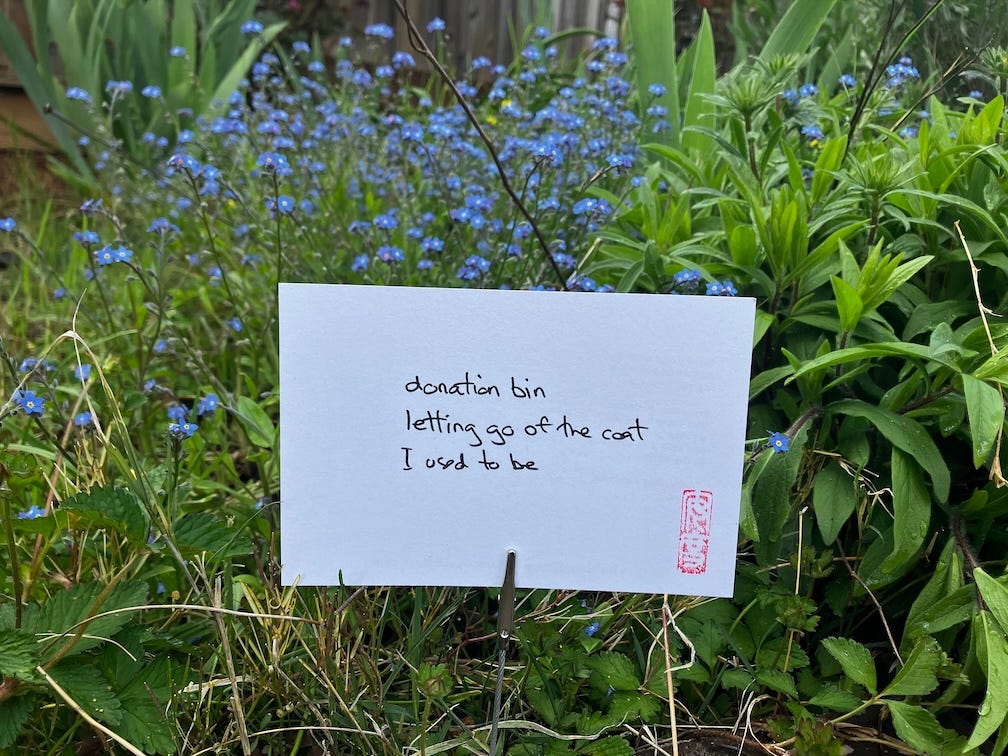 donation bin
letting go of the coat
I used to be